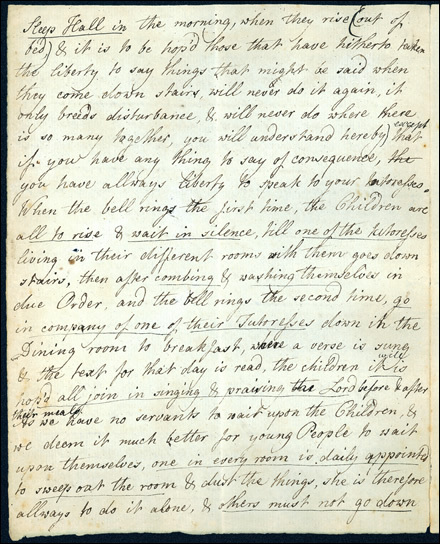 Sleep Hall in the morning, when they rise (out of
bed) & it is to be hop'd those that have hitherto taken
the liberty to say things that might be said when
they come down stairs, will never do it again, it
only breeds disturbance, & will never do where there
is so many together, you will understand hereby that except
if you have any thing to say of consequence, the
you have allways liberty to speak to your Tutoresses.
When the bell rings the first time, the Children are
all to rise & wait in silence, till one of the tutoresses
living in their different rooms with them goes down
stairs, then after combing & washing themselves in
due Order, and the bell rings the second time, go
in company of one of their Tutoresses down in the
Dining room to breakfast, where a verse is sung
& the text for that day is read, the children it is
hop'd all will join in singing & praising the Lord before & after
their meals
As we have no servants to wait upon the Children, &
we deem it much better for young People to wait
upon themselves, one in every room is daily appointed
to sweep out the room & dust the things, she is therefore
allways to do it alone, & others must not go down